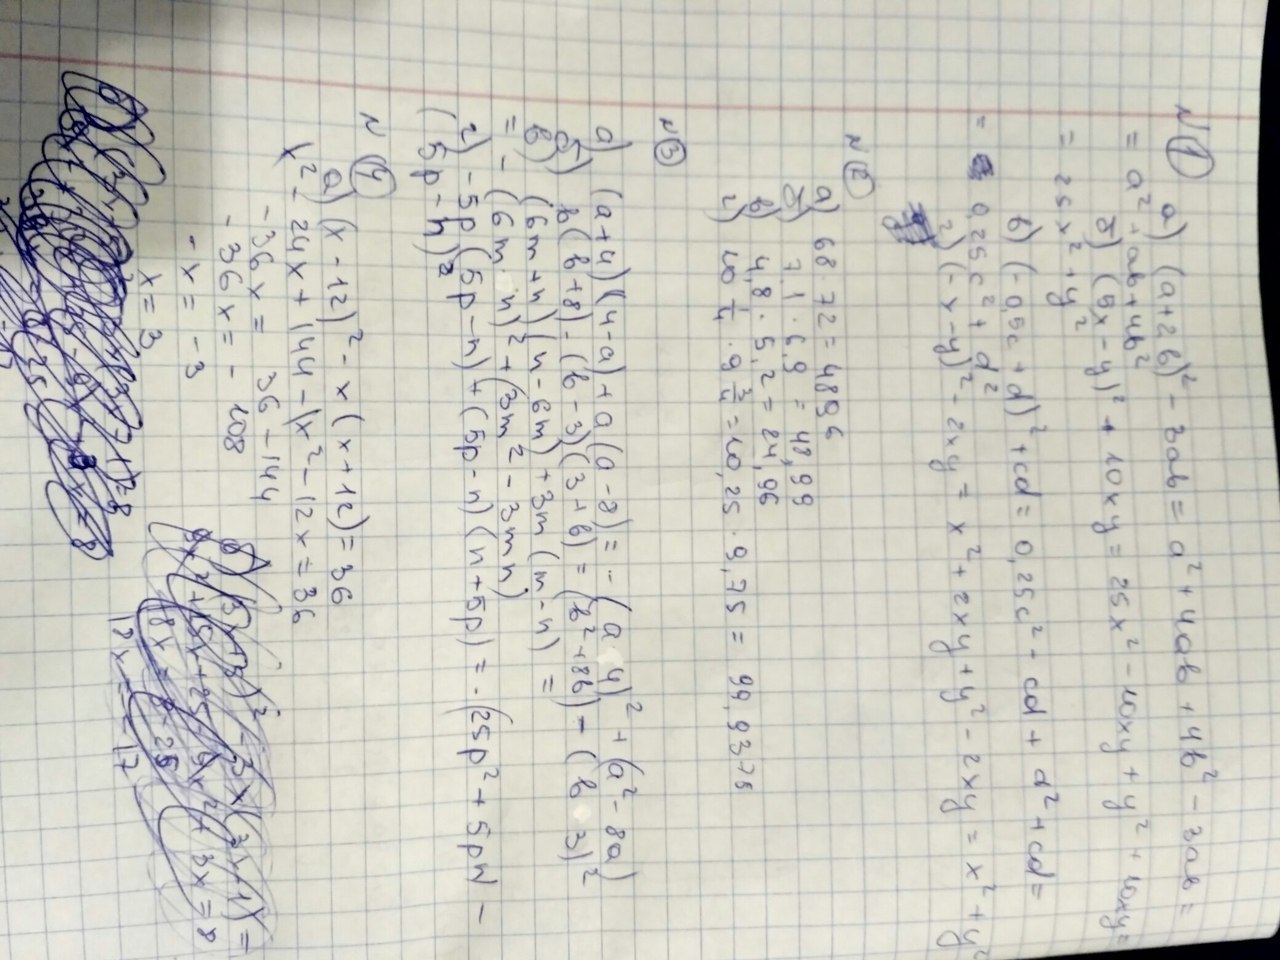 N 1 а) (a+2b)² - 3ab = a² + 4ab + 4b² - 3ab =
= a² + ab + 4b²
б) (5x - y)² + 10xy = 25x² - 10xy + y² + 10xy =
= 25x² + y²
в) (-0,5c + d)² + cd = 0,25c² - cd + d² + cd =
= 0,25c² + d²
г) (-x-y)² - 2xy = x² + 2xy + y² - 2xy = x² + y²
N 2
а) 68 72 = 4896
б) 7,1 · 6,9 = 48,99
в) 4,8 · 5,2 = 24,96
г) 10 1/4 · 9 3/4 = 10,25 · 9,75 = 99,9375
N 3
а) (a+4)(4-a) + a(a-8) = - (a 4)² + (a² - 8a)
б) b(b+8) - (b-3)(3+b) = (b² + 8b) - (b 3)²
в) (6m+n)(n-6m) + 3m(m-n) =
= - (6m n)² + (3m² - 3mn)
г) - 5p(5p-n) + (5p-n)(n+5p) = - (25p² + 5pn -
(5p-n)²
N 4
а) (x-12)² - x(x+12) = 36
x² - 24x + 144 - (x² - 12x = 36
- 36x = 36 - 144
- 36x = - 108
- x = - 3
x = 3